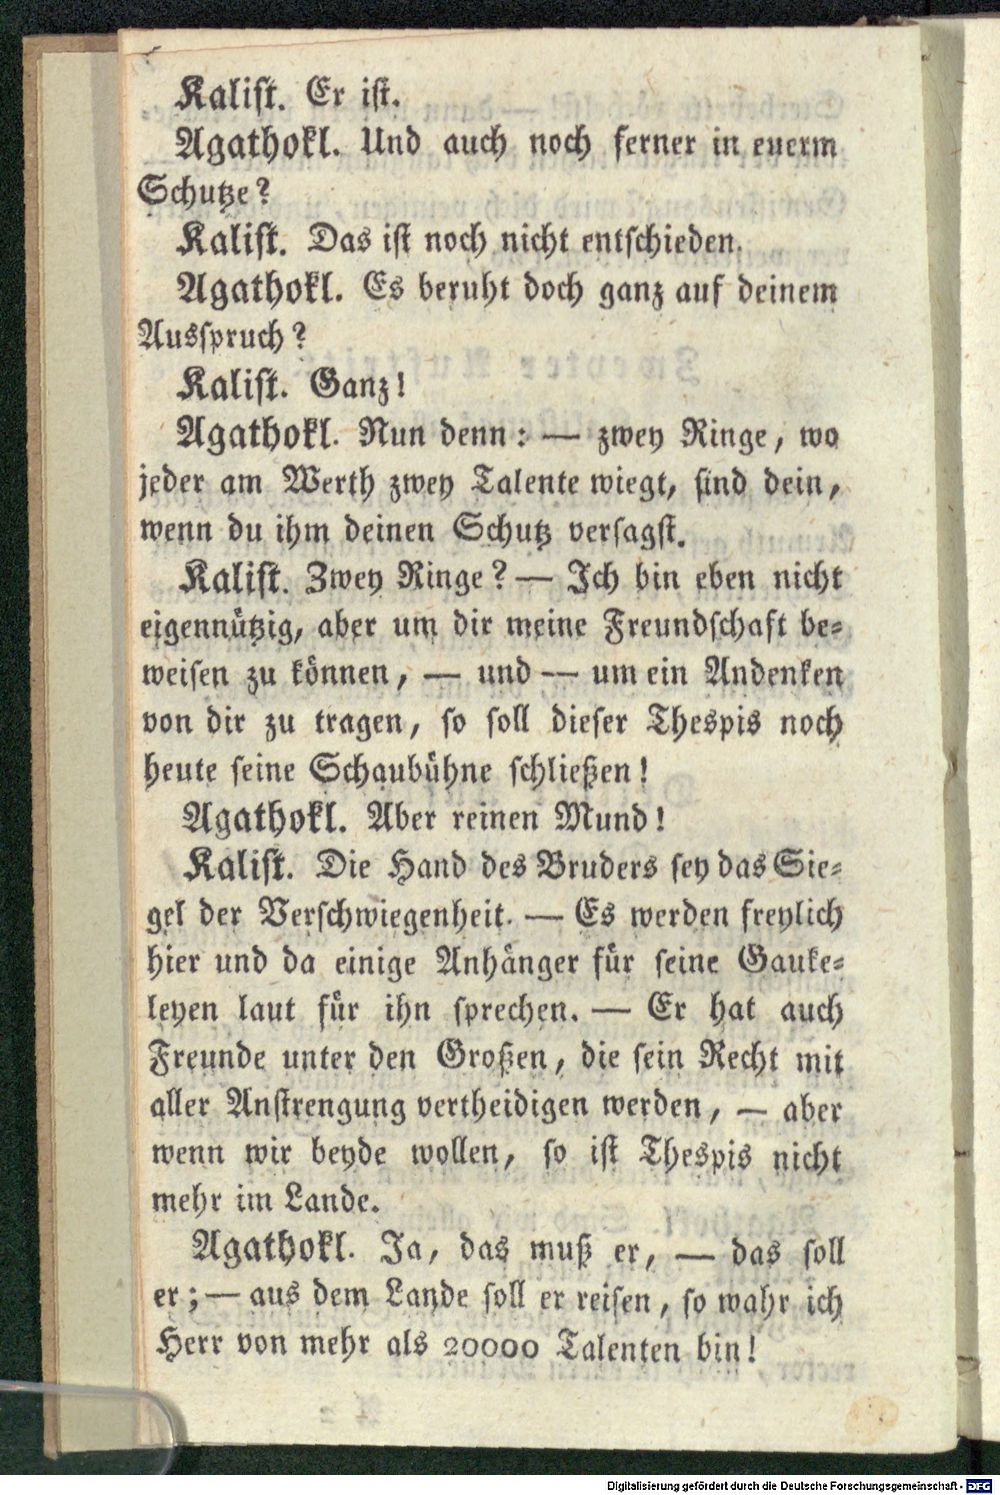 Kalist. Er ist.
Agathokl. Und auch noch ferner in euerm
Schutze?
Kalist. Das ist noch nicht entschieden.
Agathokl. Es beruht doch ganz auf deinem
Ausspruch?
Kalist. Ganz!
Agathokl. Nun denn: — zwey Ringe, wo
jeder am Werth zwey Talente wiegt, sind dein,
wenn du ihm deinen Schutz versagst.
Kalist. Zwey Ringe? — Ich bin eben nicht
eigennützig, aber um dir meine Freundschaft be-
weisen zu können, — und — um ein Andenken
von dir zu tragen, so soll dieser Thespis noch
heute seine Schaubühne schließen!
Agathokl. Aber reinen Mund!
Kalist. Die Hand des Bruders sey das Sie-
gel der Verschwiegenheit. — Es werden freylich
hier und da einige Anhänger für seine Gauke-
leyen laut für ihn sprechen. — Er hat auch
Freunde unter den Großen, die sein Recht mit
aller Anstrengung vertheidigen werden, — aber
wenn wir beyde wollen, so ist Thespis nicht
mehr im Lande.
Agathokl. Ja, das muß er, — das soll
er; — aus dem Lande soll er reisen, so wahr ich
Herr von mehr als 20000 Talenten bin!
Digitalisierung gefördert durch die Deutsche Forschungsgemeinschaft - DFG